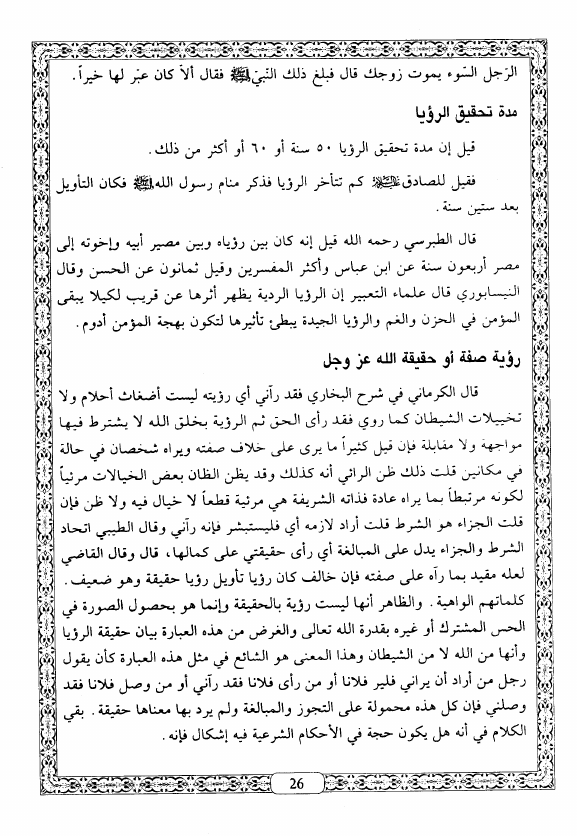 الرّجل السّوء يموت زوجك قال فبلغ ذلك النّبيّ ﷺ فقال ألاّ كان عبّر لها خيراً.
مدة تحقيق الرؤيا
قيل إن مدة تحقيق الرؤيا ٥٠ سنة أو ٦٠ أو أكثر من ذلك.
فقيل للصادق كم تتأخر الرؤيا فذكر منام رسول الله ﷺ فكان التأويل
بعد ستين سنة.
قال الطبرسي رحمه الله قيل إنه كان بين رؤياه وبين مصير أبيه وإخوته إلى
مصر أربعون سنة عن ابن عباس وأكثر المفسرين وقيل ثمانون عن الحسن وقال
النيسابوري قال علماء التعبير إن الرؤيا الردية يظهر أثرها عن قريب لكيلا يبقى
المؤمن في الحزن والغم والرؤيا الجيدة يبطئ تأثيرها لتكون بهجة المؤمن أدوم.
رؤية صفة أو حقيقة الله عز وجل
قال الكرماني في شرح البخاري فقد رآني أي رؤيته ليست أضغاث أحلام ولا
تخييلات الشيطان كما روي فقد رأى الحق ثم الرؤية بخلق الله لا يشترط فيها
مواجهة ولا مقابلة فإن قيل كثيراً ما يرى على خلاف صفته ويراه شخصان في حالة
في مكانين قلت ذلك ظن الرائي أنه كذلك وقد يظن الظان بعض الخيالات مرئياً
لكونه مرتبطاً بما يراه عادة فذاته الشريفة هي مرئية قطعاً لا خيال فيه ولا ظن فإن
قلت الجزاء هو الشرط قلت أراد لازمه أي فليستبشر فإنه رآني وقال الطيبي اتحاد
الشرط والجزاء يدل على المبالغة أي رأى حقيقتي على كمالها، قال وقال القاضي
لعله مقيد بما رآه على صفته فإن خالف كان رؤيا تأويل رؤيا حقيقة وهو ضعيف.
كلماتهم الواهية. والظاهر أنها ليست رؤية بالحقيقة وإنما هو بحصول الصورة في
الحس المشترك أو غيره بقدرة الله تعالى والغرض من هذه العبارة بيان حقيقة الرؤيا
وأنها من الله لا من الشيطان وهذا المعنى هو الشائع في مثل هذه العبارة كأن يقول
رجل من أراد أن يراني فلير فلانا أو من رأى فلانا فقد رآني أو من وصل فلانا فقد
وصلني فإن كل هذه محمولة على التجوز والمبالغة ولم يرد بها معناها حقيقة. بقي
الكلام في أنه هل يكون حجة في الأحكام الشرعية فيه إشكال فإنه.
26